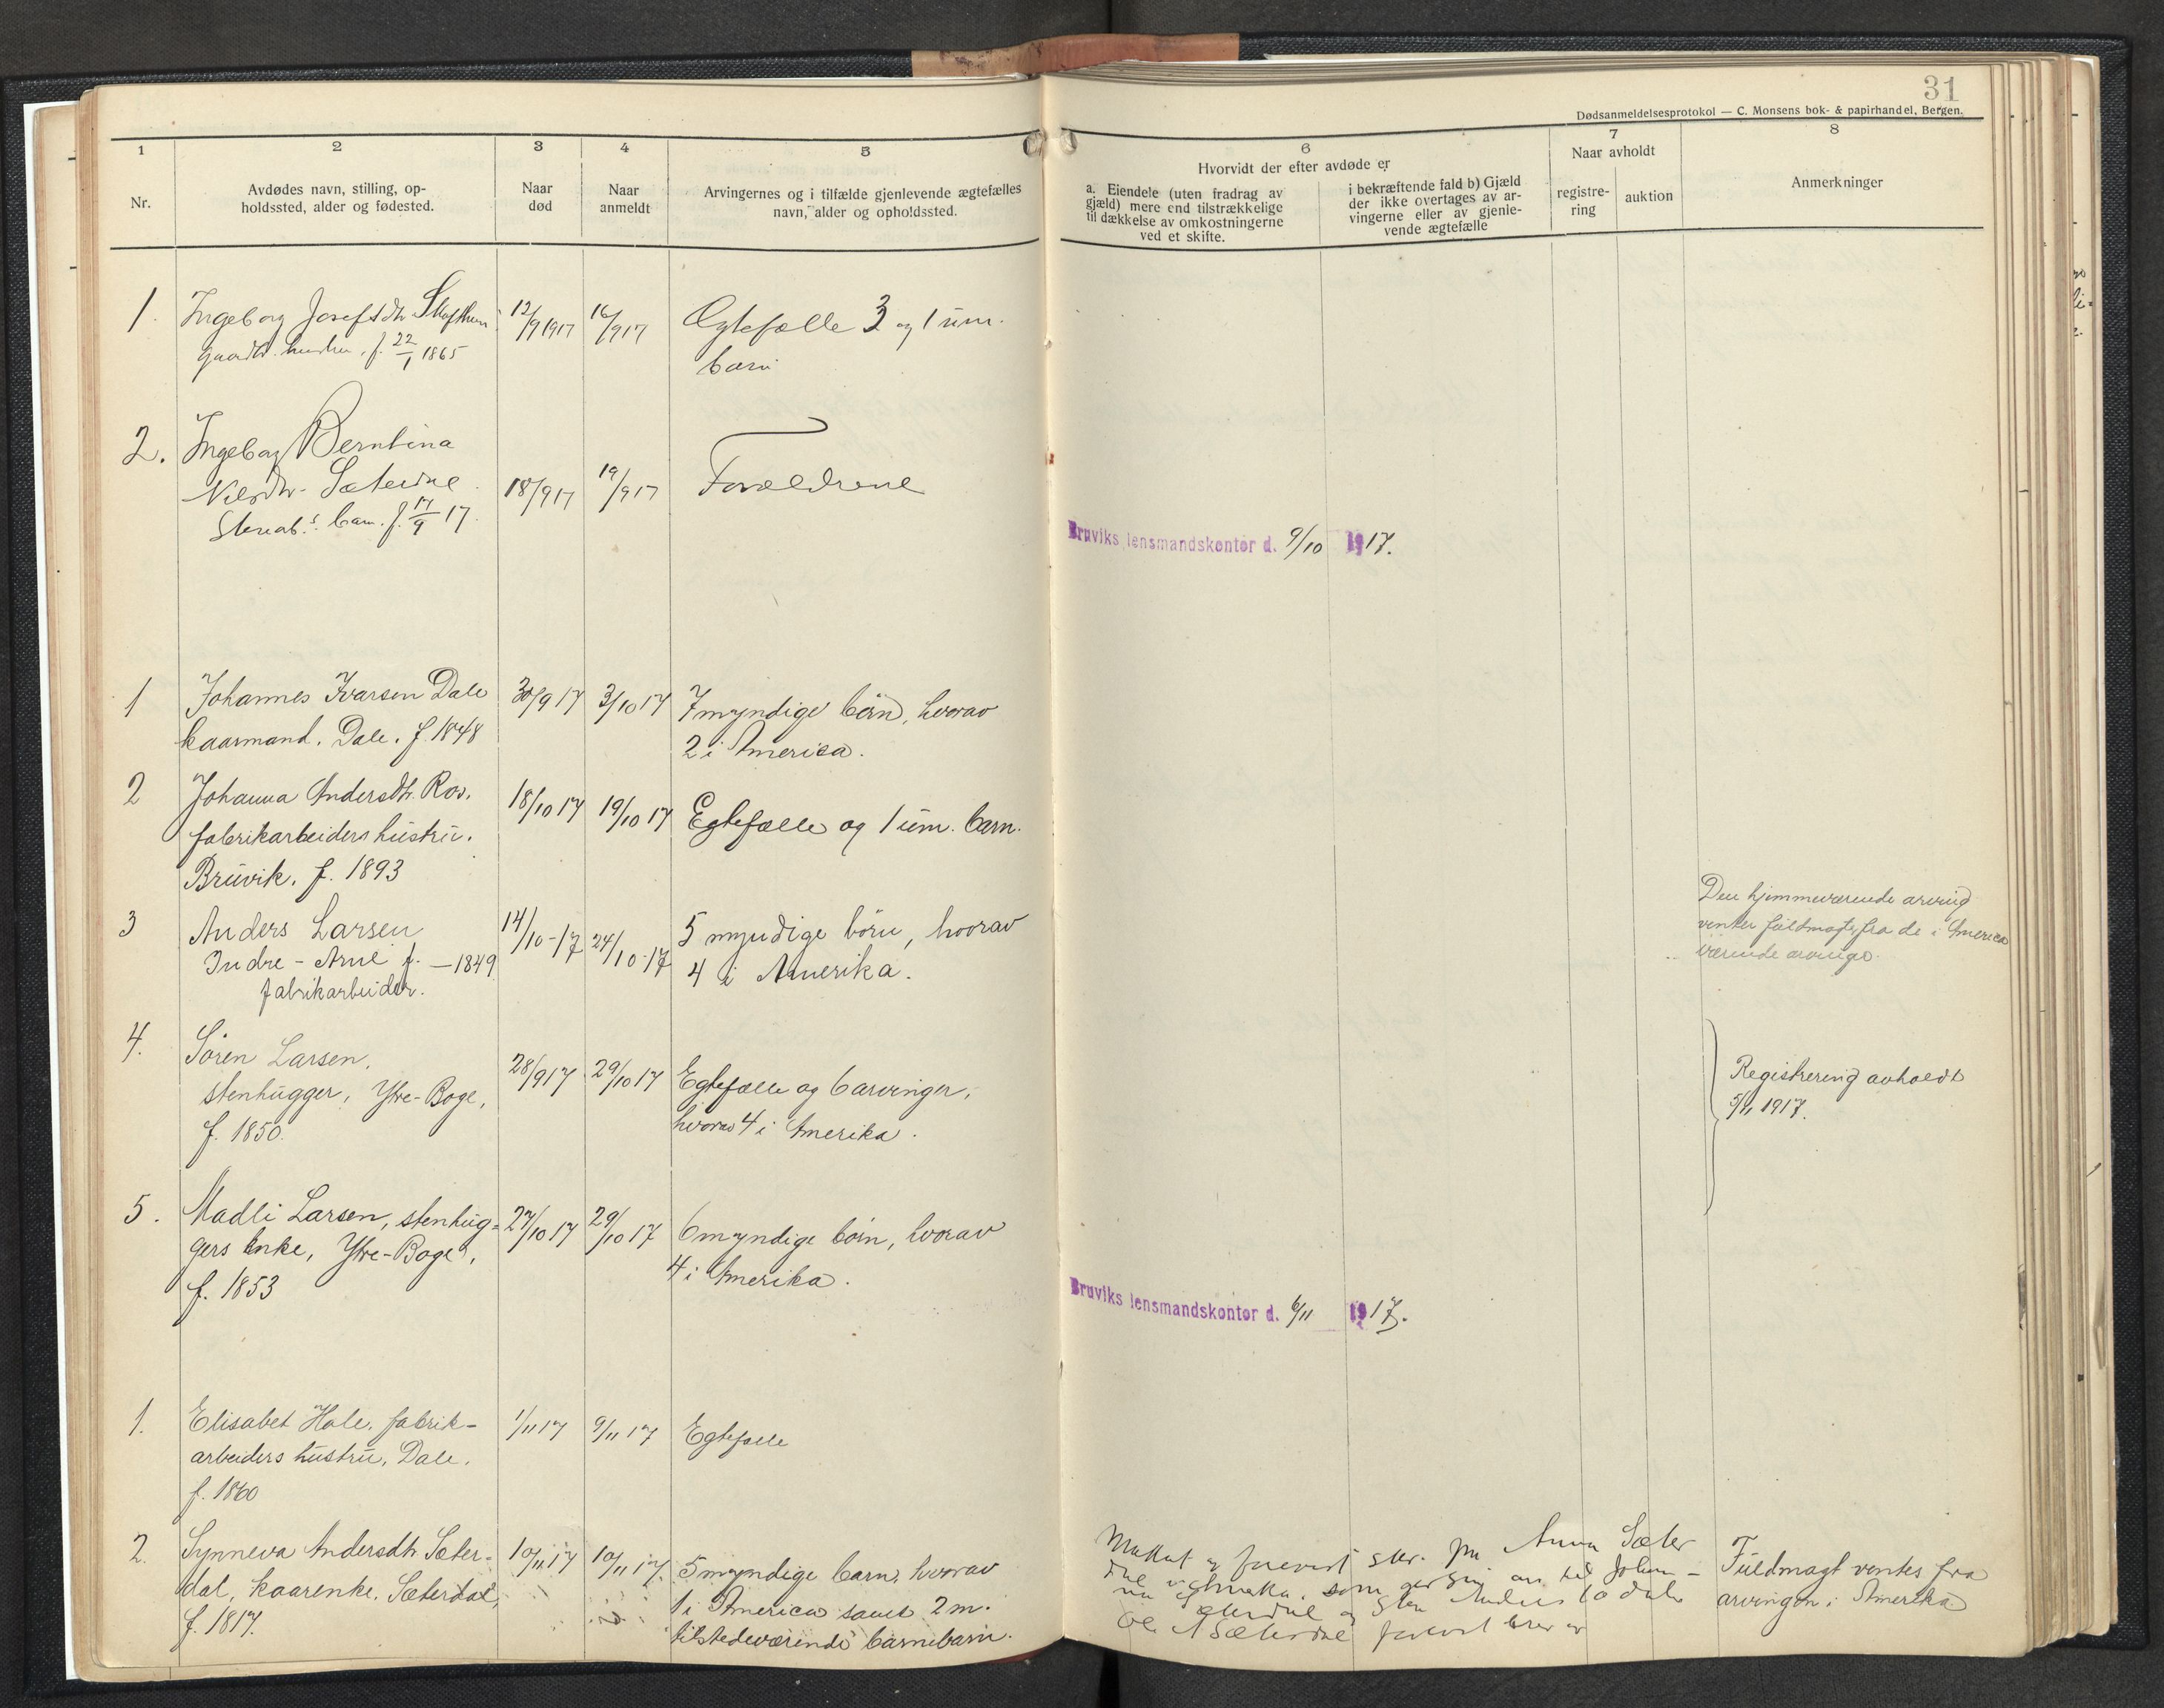 31
Dødsanmeldelsesprotokol — C. Monsens bok- & papirhandel, Bergen.
1
2
3
4
5
6
7
8
Nr.
Avdødes navn, stilling, op-
holdssted, alder og fødested.
Naar
død
Naar
anmeldt
Arvingernes og i tilfælde gjenlevende ægtefælles
navn, alder og opholdssted.
Hvorvidt der efter avdøde er
a. Eiendele (uten fradrag av
gjæld) mere end tilstrækkelige
til dækkelse av omkostningerne
ved et skifte.
i bekræftende fald b) Gjæld
der ikke overtages av ar-
vingerne eller av gjenle-
vende ægtefælle
Naar avholdt
registre-
ring
auktion
Anmerkninger
1.
Ingeborg Josefsdtr.
f. 22/1 1865
12/9 1917
16/9 17
Ægtefælle 3 og 1 um.
barn
2.
Ingeborg Berntina
Nilsdtr. Sæterdal
barn. f. 17/9 17.
18/9 17
19/9 17
Forældrene
Bruviks lensmandskontor d. 9/10 1917.
1
Johannes Ivarsen Dale
kaarmand. Dale. f. 1848
30/9 17
3/10 17
7 myndige börn, hvorav
2 i America.
2
Johanna Andersdtr. Ros.
fabrikarbeiders hustru.
Bruvik. f. 1893
18/10 17
19/10 17
Egtefælle og 1 um. barn.
3
Anders Larsen
Indre-Arne f. — 1849
fabrikarbeider.
14/10-17
24/10-17
5 myndige börn, hvorav
4 i Amerika.
Den hjemmeværende arving
venter fuldmagt fra de i America
værende arvinger.
4.
Sören Larsen,
stenhugger, Ytre-Boge,
f. 1850.
28/9 17
29/10 17
Egtefælle og 6 arvinger,
hvorav 4 i Amerika.
Registrering avholdt
5/11 1917.
5.
Madli Larsen, stenhug=
gers enke, Ytre-Boge,
f. 1853
27/10 17
29/10 17
6 myndige börn, hvorav
4 i Amerika.
Bruviks lensmandskontor d. 6/11 1917.
1.
Elisabet Hole. fabrik-
arbeiders hustru, Dale.
f. 1860
1/11 17
9/11 17
Egtefælle
2.
Synneva Andersdtr. Sæter-
dal, kaarenke. Sæterdal,
f. 1817.
10/11 17
10/11 17.
5 myndige barn, hvorav
1 i America samt 2 m.
tilstedeværende barnebarn.
Anna Sæter
dal som
Sæterdal og
A Sæterdal
Fuldmagt ventes fra
arvingen i Amerika